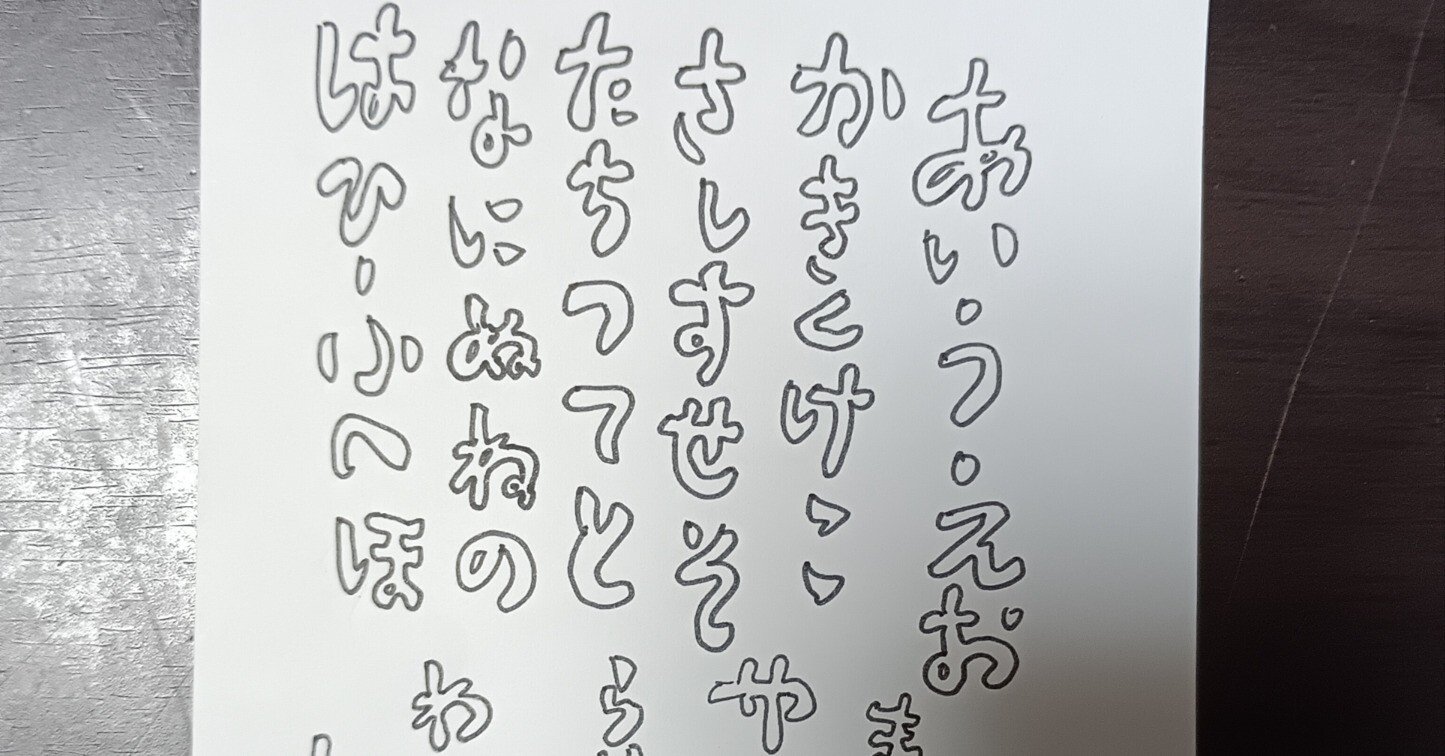 あいうえお
かきくけこ
さしすせそ
たちつてと
なにぬねの
はひふへほ
ま
や
ら
わ